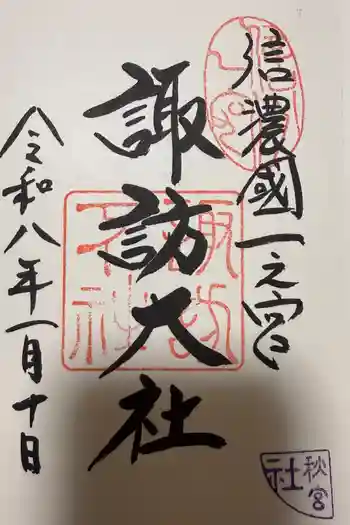 信濃國一之宮
諏訪大社
令和八年一月十日
諏訪大社
秋宮
社